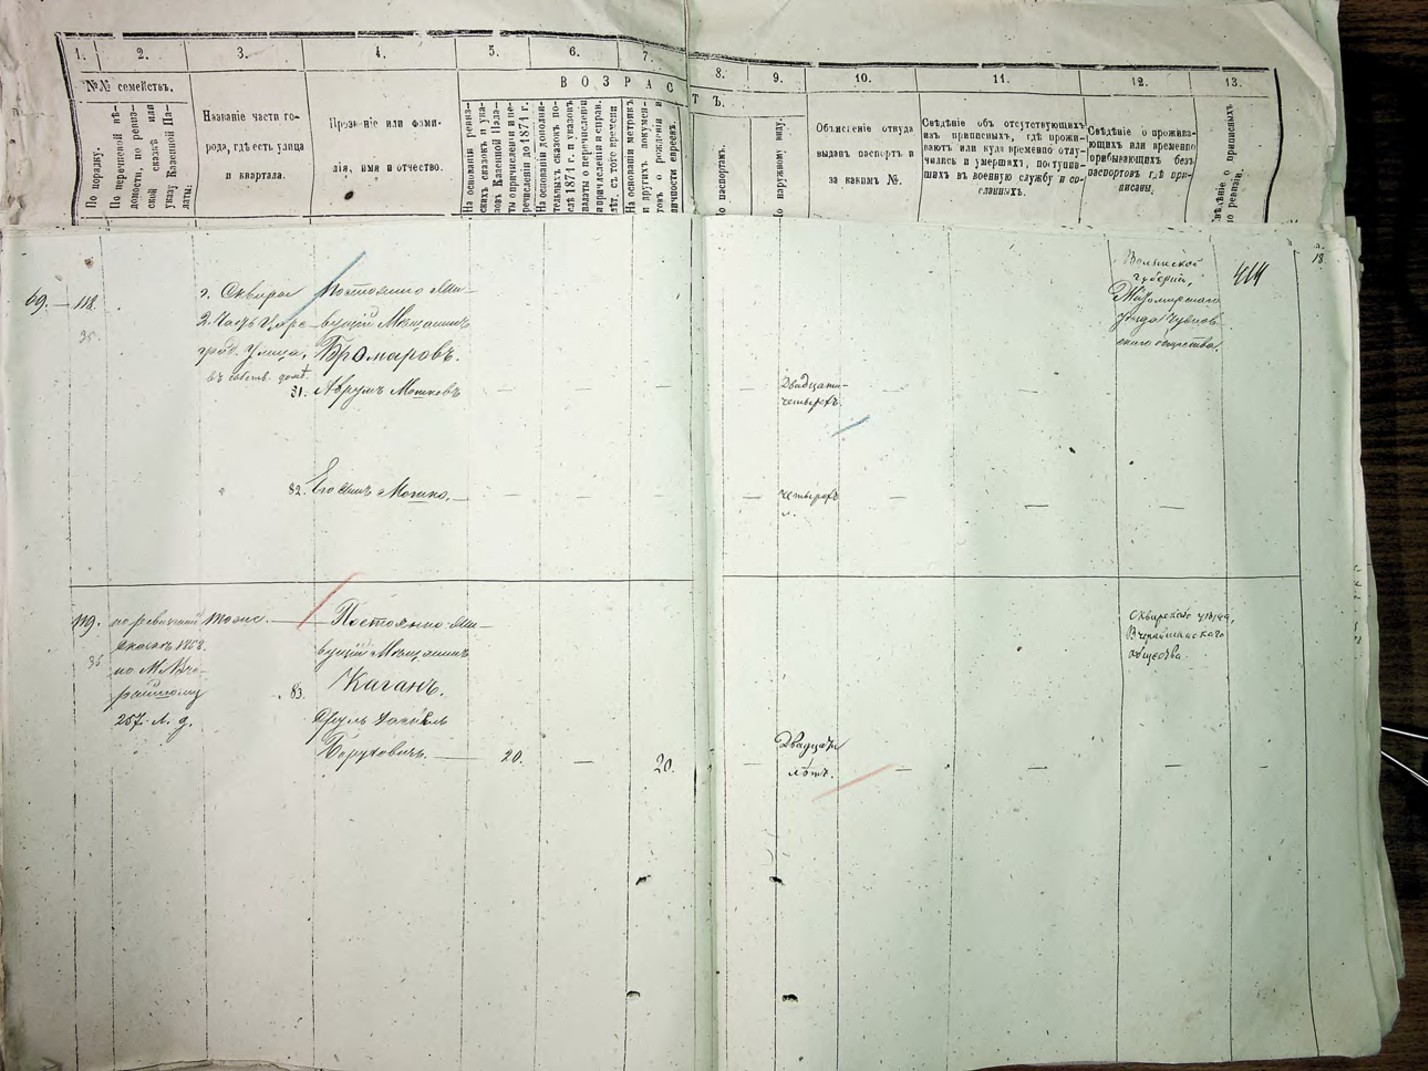 1. 2. 3. 4. 5. 6. 7. 8. 9. 10. 11. 12. 13.
№№ семействъ.
ВОЗРАСТЪ.
По порядку.
По перечневой вѣ-
домости, по ревиз-
ской сказкѣ или
указу Казенной Па-
латы.
Названіе части го-
рода, гдѣ есть улица
и квартала.
Прозвніе или фами-
лія, имя и отчество.
На основаніи ревиз-
скихъ сказокъ и ука-
зовъ Казенной Пала-
ты о причисленіи и пе-
речисленіи до 1871 г.
На основаніи дополни-
тельныхъ сказокъ по-
слѣ 1871 г. и указовъ
палаты о перечисленіи
и причисленіи и справ.
лѣт. съ того времени
На основаніи метрикъ
и другихъ докумен-
товъ о рожденіи и
личности евреевъ.
По паспортамъ.
По наружному виду.
Объясненіе откуда
выданъ паспортъ и
за какимъ №.
Свѣдѣніе объ отсутствующихъ
изъ приписныхъ, гдѣ прожи-
ваютъ или куда временно отлу-
чились и умершихъ, поступив-
шихъ въ военную службу и со-
сланныхъ.
Свѣдѣніе о прожива-
ющихъ или временно
прибывающихъ безъ
паспортовъ гдѣ при-
писаны.
Свѣдѣніе о приписныхъ
по ревизіи.
69. — 118.
35
г. Сквира
2. Часть Царе-
град. улица,
въ собств. домѣ
Постоянно жи-
вущій Мѣщанинъ
Бромаровъ.
81. Аврумъ Мошковъ
Двадцати-
четырехъ
Волынской
губерніи,
Житомирскаго
уѣзда Чудновс-
скаго общества.
82. Его сынъ Мошко.
четырехъ
л.
119.
35
по ревизской
сказкѣ 1858.
257. л. д.
тоже.
Постоянно жи-
вущій Мѣщанинъ
83. Каганъ.
Боруховичъ. — 20. — 20.
Двадцати
лѣтъ.
Сквирскаго уѣзда,
Вчерайшанскаго
общества.
18.